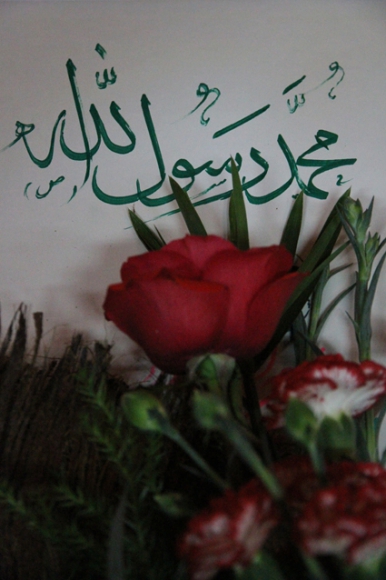 محمَّدٌ رَسُولُ اللّه (ص)